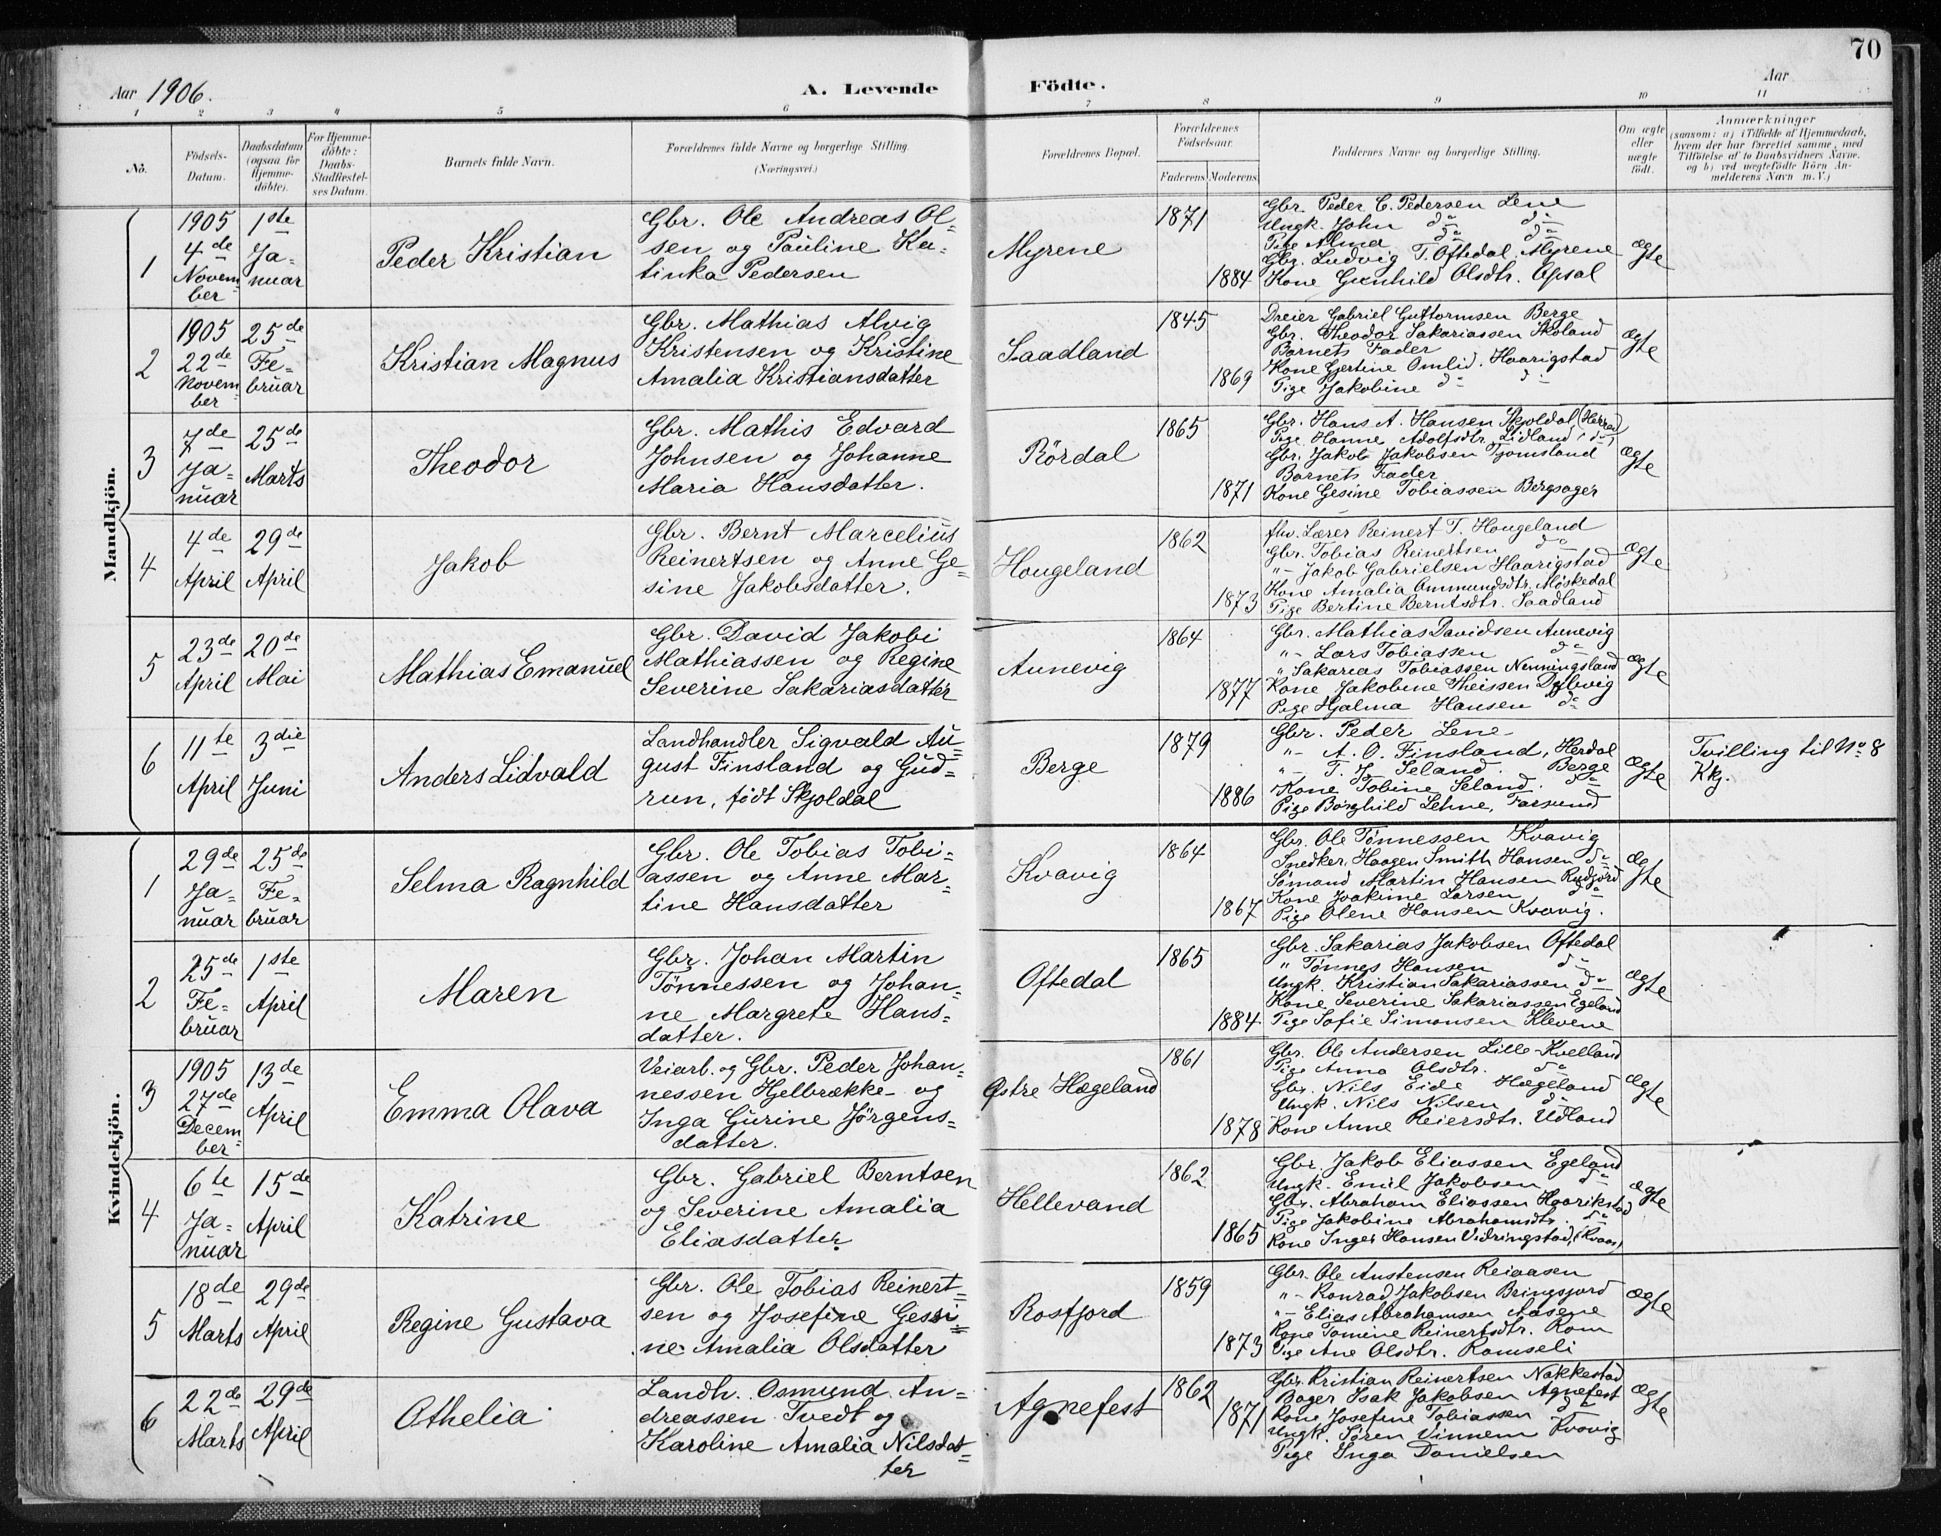 70
Aar 1906. A. Levende Födte. Aar
1 2 3 4 5 6 7 8 9 10 11
No. Födsels-Datum. Daabsdatum (ogsaa for Hjemmedöbte). For Hjemmedöbte: Daabs-Stadfæstelses Datum. Barnets fulde Navn. Forældrenes fulde Navne og borgerlige Stilling. (Næringsvei.) Forældrenes Bopæl. Forældrenes Födselsaar. Faderens Moderens Faddernes Navne og borgerlige Stilling. Om ægte eller uægte födt. Anmærkninger (saasom: a) i Tilfælde af Hjemmedaab, hvem der har forrettet samme, med Tilföielse af to Daabsvidners Navne, og b) ved uægtefödte Börn Anmelderens Navn m. V.)
Mandkjön.
1
1905 4de November
1ste Januar
Peder Kristian
Gbr. Ole Andreas Ol-
sen og Pauline Ka-
tinka Pedersen
Myrene
1871
1884
Gbr. Peder C. Pedersen Lene
Ungk. John do do
Pige Alma do do
Gbr. Ludvig T. Oftedal, Myrene
Kone Gunhild Olsdtr. Opsal
Ægte
2
1905 22de November
25de Februar
Kristian Magnus
Gbr. Mathias Alvig
Kristensen og Kristine
Amalia Kristiansdatter
Saadland
1845
1869
Dreier Gabriel Guttormsen Berge
Gbr. Theodor Sakariassen Skoland
Barnets Fader
Kone Gjertine Omlid. Haarigstad
Pige Jakobine do do
Ægte
3
7de Januar
25de Marts
Theodor
Gbr. Mathis Edvard
Johnsen og Johanne
Maria Hansdatter.
Rördal
1865
1871
Gbr. Hans A. Hansen Skjoldal, (Herred)
Pige Hanne Adolfsdtr. Lidland (do)
Gbr. Jakob Jakobsen Tjomsland
Barnets Fader
Kone Gesine Tobiassen Bergsager
Ægte
4
4de April
29de April
Jakob
Gbr. Bernt Marcelius
Reinertsen og Anne Ge-
sine Jakobsdatter.
Hougeland
1862
1873
fhv. Lærer Reinert T. Hougeland
Gbr. Tobias Reinertsen do
"- Jakob Gabrielsen Haarigstad
Kone Amalia Ommundsdtr. Møskedal
Pige Bertine Berntsdtr. Saadland
Ægte
5
23de April
20de Mai
Mathias Emanuel
Gbr. David Jakobi
Mathiassen og Regine
Severine Sakariasdatter
Aunevig
1864
1877
Gbr. Mathias Davidsen Aunevig
"- Lars Tobiassen do
" Sakarias Tobiassen Nenningsland
Kone Jakobine Theissen Dybvig
Pige Hjalma Hansen do
Ægte
6
11te April
3die Juni
Anders Lidvald
Landhandler Sigvald Au-
gust Finsland og Gud-
run, født Skjoldal
Berge
1879
1886
Gbr. Peder Lene
"- A. O. Finsland, Herdal
"- T. J. Seland. Berge
Kone Tobine Seland. do
Pige Borghild Lehne, Farsund
Ægte
Tvilling til No 8
Kkj.
Kvindekjön.
1
29de Januar
25de Februar
Selma Ragnhild
Gbr. Ole Tobias Tobi-
assen og Anne Mar-
tine Hansdatter
Kvavig
1864
1867
Gbr. Ole Tønnessen Kvavig
Snedker Haagen Smith Hansen do
Sømand Martin Hansen Rudjord
Kone Joakime Larsen do
Pige Olene Hansen Kvavig.
Ægte
2
25de Februar
1ste April
Maren
Gbr. Johan Martin
Tønnessen og Johan-
ne Margrete Hans-
datter.
Oftedal
1865
1884
Gbr. Sakarias Jakobsen Oftedal
" Tønnes Hansen do
Ungk. Kristian Sakariassen do
Kone Severine Sakariassen Egeland
Pige Sofie Simonsen Klevene
Ægte
3
1905 27de December
13de April
Emma Olava
Veiarb. og Gbr. Peder Johan-
nessen Hjelbrække og
Inga Gurine Jörgens-
datter.
Østre Hægeland
1861
1878
Gbr. Ole Andersen Lille-Kvelland
Pige Anna Olsdtr. do
Gbr. Nils Eide Hægeland
Ungk. Nils Nilsen do
Kone Anne Reiersdtr. Udland
Ægte
4
6te Januar
15de April
Katrine
Gbr. Gabriel Berntsen
og Severine Amalia
Eliasdatter.
Hellevand
1862
1865
Gbr. Jakob Eliassen Egeland
Ungk. Emil Jakobsen do
Gbr. Abraham Eliassen Haarikstad
Pige Jakobine Abrahamsdtr. do
Kone Inger Hansen Vidringstad, (Kvaas)
Ægte
5
18de Marts
29de April
Regine Gustava
Gbr. Ole Tobias Reinert-
sen og Josefine Gesi-
ne Amalia Olsdatter
Rosfjord
1859
1873
Gbr. Ole Austensen Reiaasen
"- Konrad Jakobsen Bringsjord
"- Elias Abrahamsen Aasene
Kone Tomine Reinertsdtr. Rom
Pige Ane Olsdtr. Romseli
Ægte
6
22de Marts
29de April
Othelia
Landh. Osmund An-
dreassen Tvedt og
Karoline Amalia Nilsdat-
ter
Agnefest
1862
1871
Gbr. Kristian Reinertsen Nakkestad
Bager Isak Jakobsen Agnefest
Kone Josefine Tobiassen do
Ungk. Søren Vinnem Kvavig
Pige Inga Danielsen
Ægte